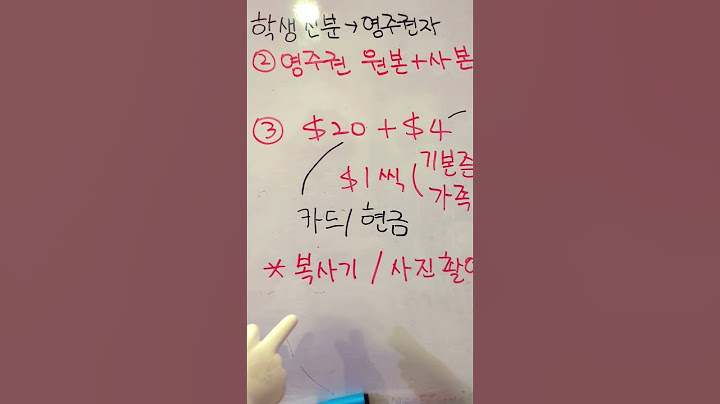 학생신분→영주권자
② 영주권 원본+사본
③ $20 + $4
$1씩 (기본증
가족
카드/현금
* 복사기 / 사진촬